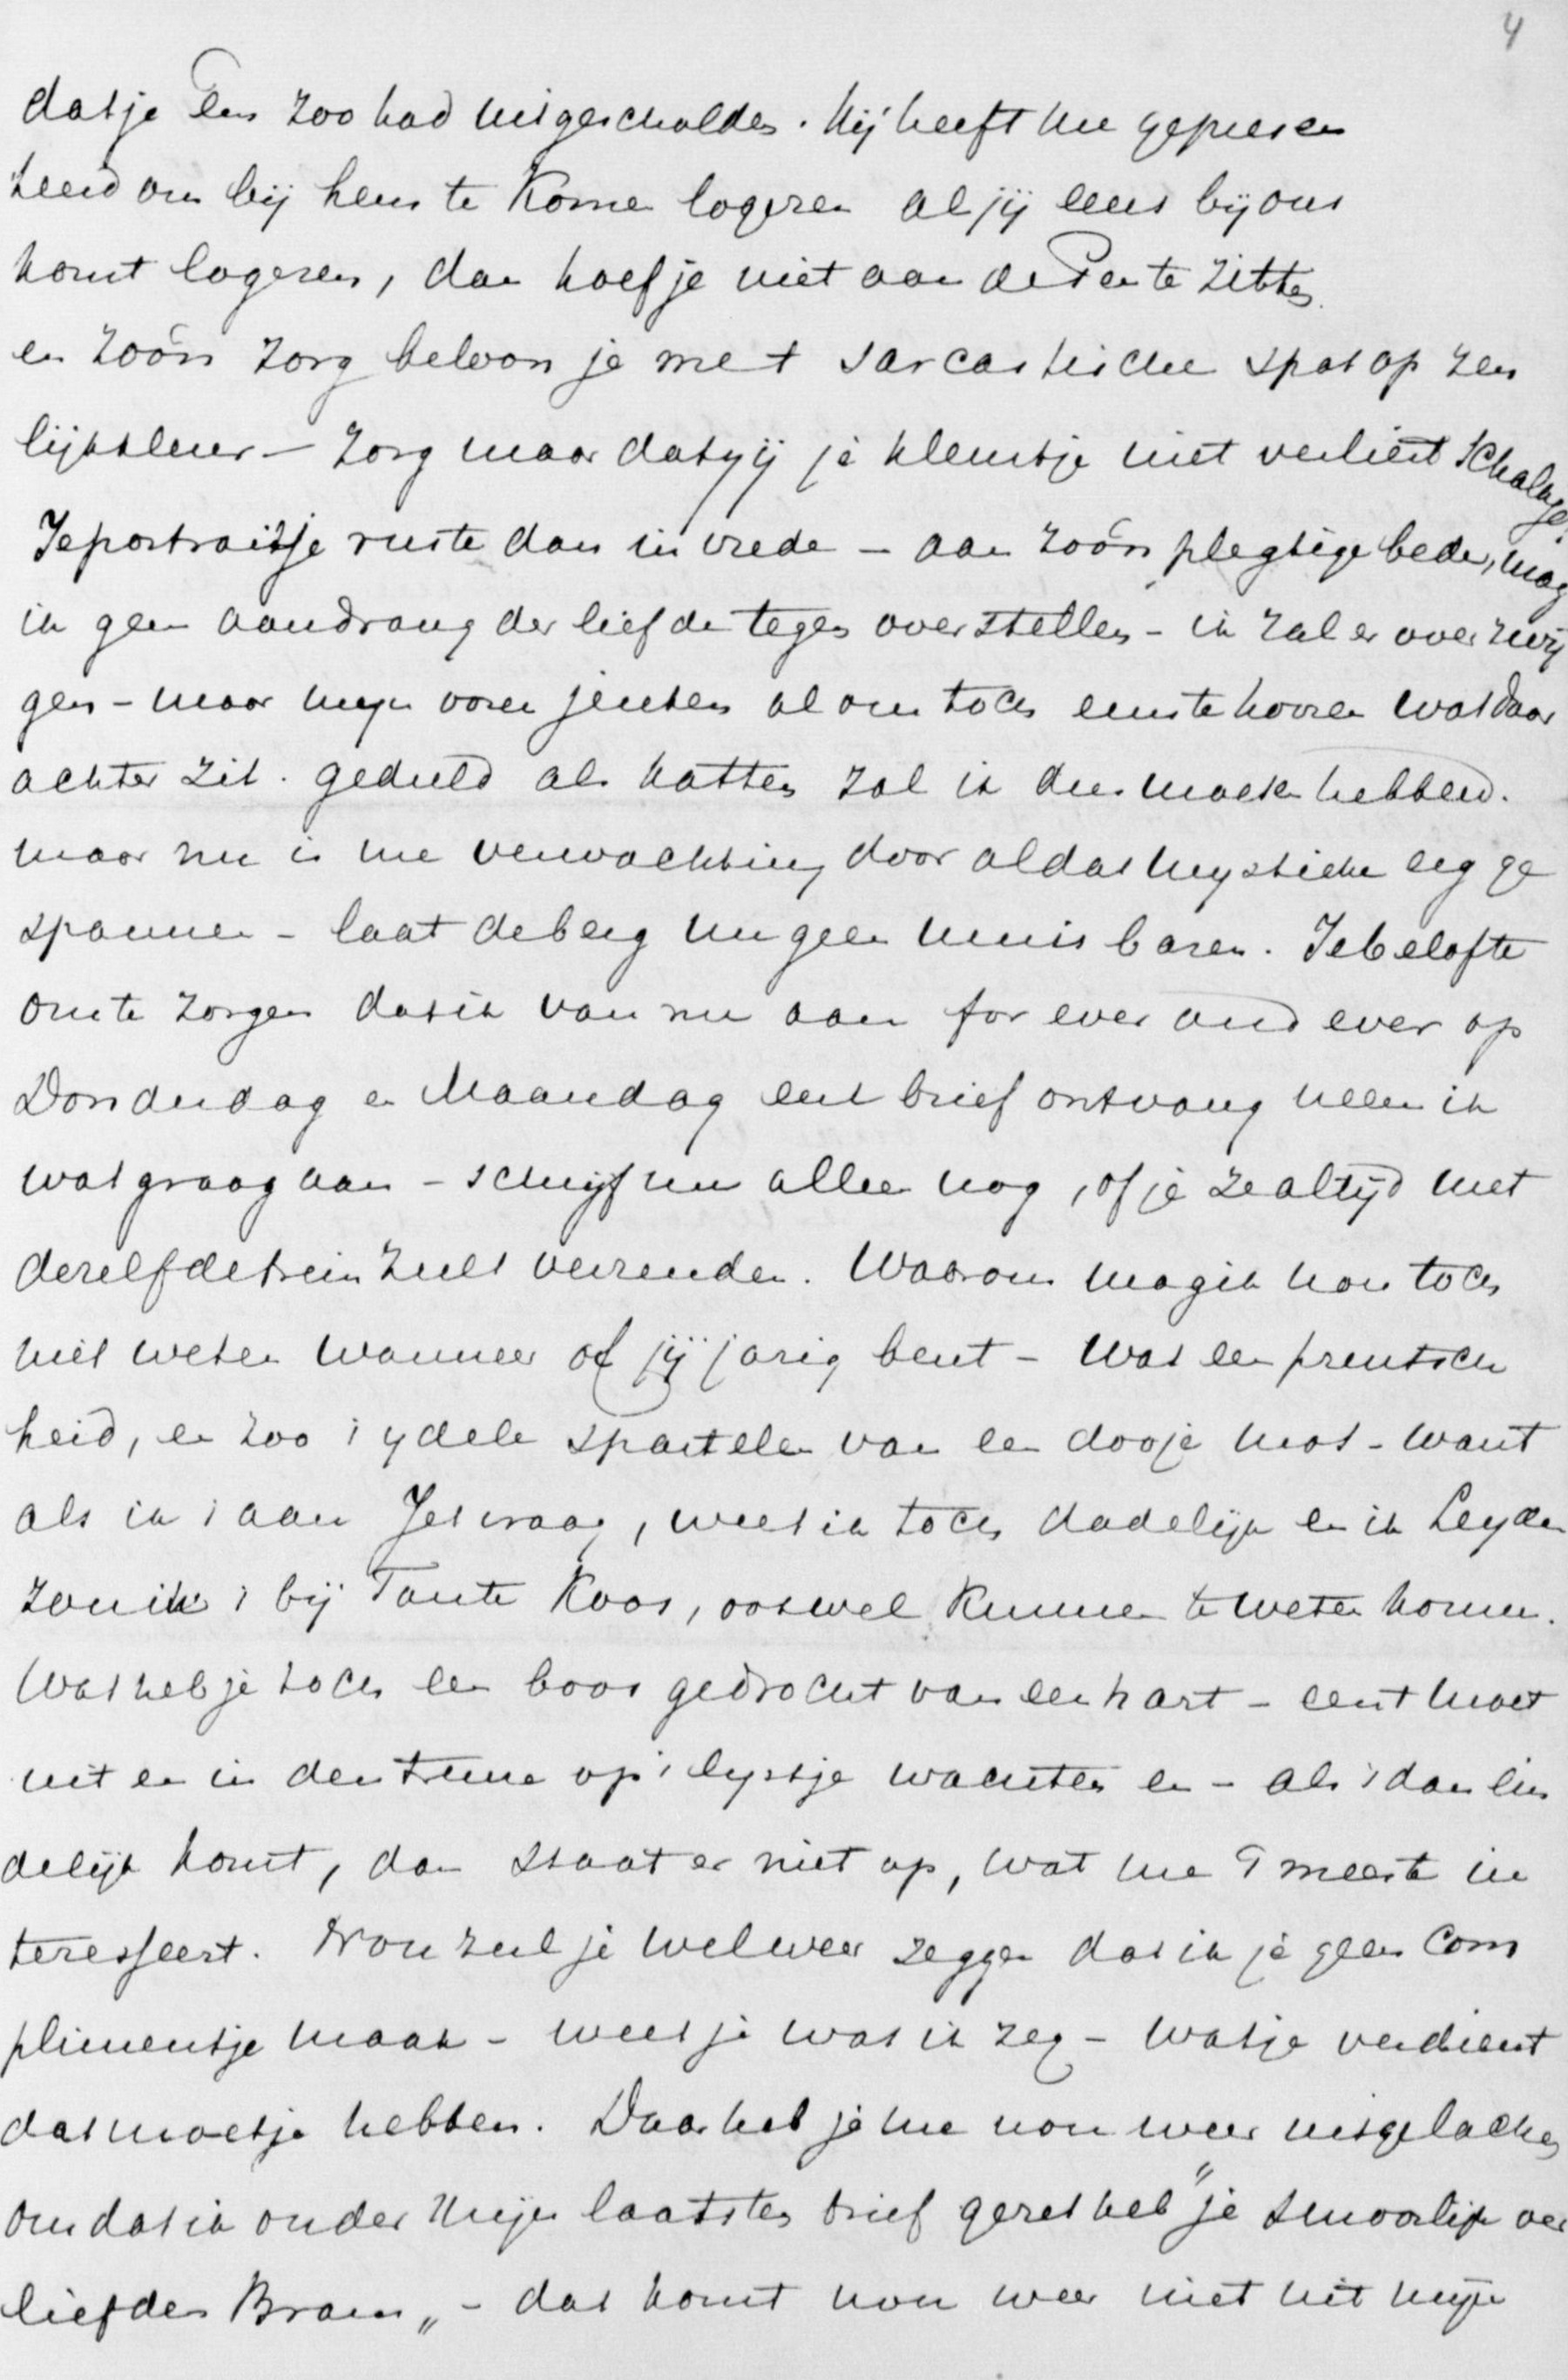 4
dat je Een zoo had uitgescholden. Hij heeft me gepresen
teerd om bij hem te Komen logeren als jij eens bij ons
komt logeren, dan hoef je niet aan de Pen te zitten.
en zóó'n zorg beloon je met sarcastische spot op zen
lijksleur – Zorg maar dat jij je kleurtje niet verliest Schalkje!
Je portraitje ruste dan in vrede – aan zóó'n plegtige bede, mag
ik geen aandrang der liefde tegen over stellen – ik zal er over zwij
gen – maar mijn ooren jeuken al om toch eens te hooren wat daar
achter zit. geduld als katten zal ik dus moeten hebben.
maar nu is me verwachting door al dat mystieke erg ge
spannen – laat de berg nu geen muis baren. Je belofte
om te zorgen dat ik van nu aan for ever and ever op
Donderdag en Maandag een brief ontvang neem ik
wat graag aan – schrijf nu alleen nog, of je ze altijd met
dezelfde trein zult verzenden. Waarom mag ik nou toch
niet weten wanneer of jij jarig bent – Wat een preutsch
heid, en zoo ijdele spartelen van een dooje mos – want
als ik 't aan Jet vraag, weet ik toch dadelijk en in Leyden
zou ik 't bij Tante Koos, ook wel Kunnen te weten komen.
Wat heb je toch een boos gedrocht van een hart – eerst moet
ik er in den treure op 't lijstje wachten en – als 't dan ein
delijk komt, dan staat er niet op, wat me 't meeste in
teresseert. Nou zul je wel weer zeggen dat ik je geen Com
plimentje maak – weet je wat ik zeg – wat je verdient
dat moet je hebben. Daar heb je me nou weer uitgelachen
omdat ik onder mijn laatsten brief gezet heb "je smoorlijk ver
liefden Bram„ – dat komt nou weer niet uit mijn